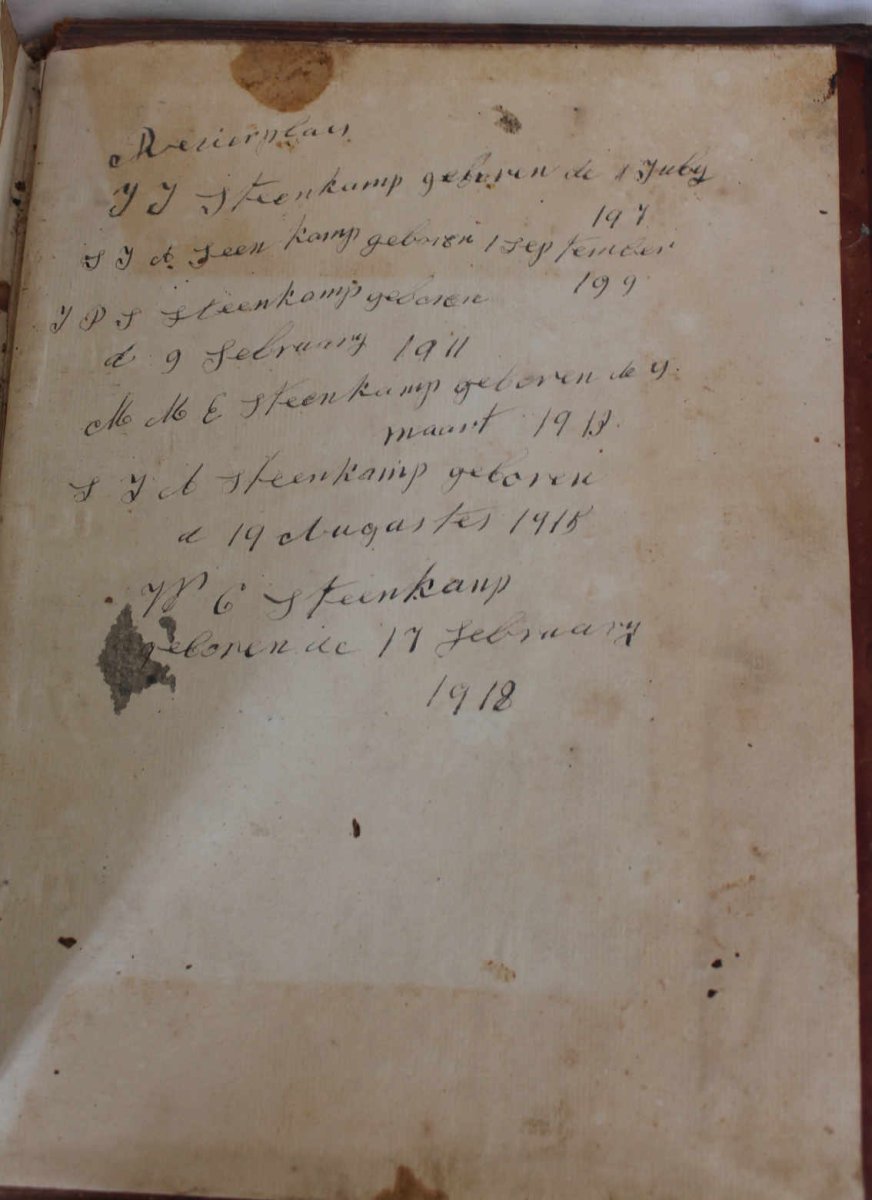 Revierplaas
J J Steenkamp geboren de 1 Juby
197
S J A Seen kamp geboren 1 September
199
J P S Steenkamp geboren
d 9 February 1911
M M E Steenkamp geboren de 9
maart 1913
S J A Steenkamp geboren
d 19 Augastes 1915
W C Steenkamp
geboren de 17 February
1918